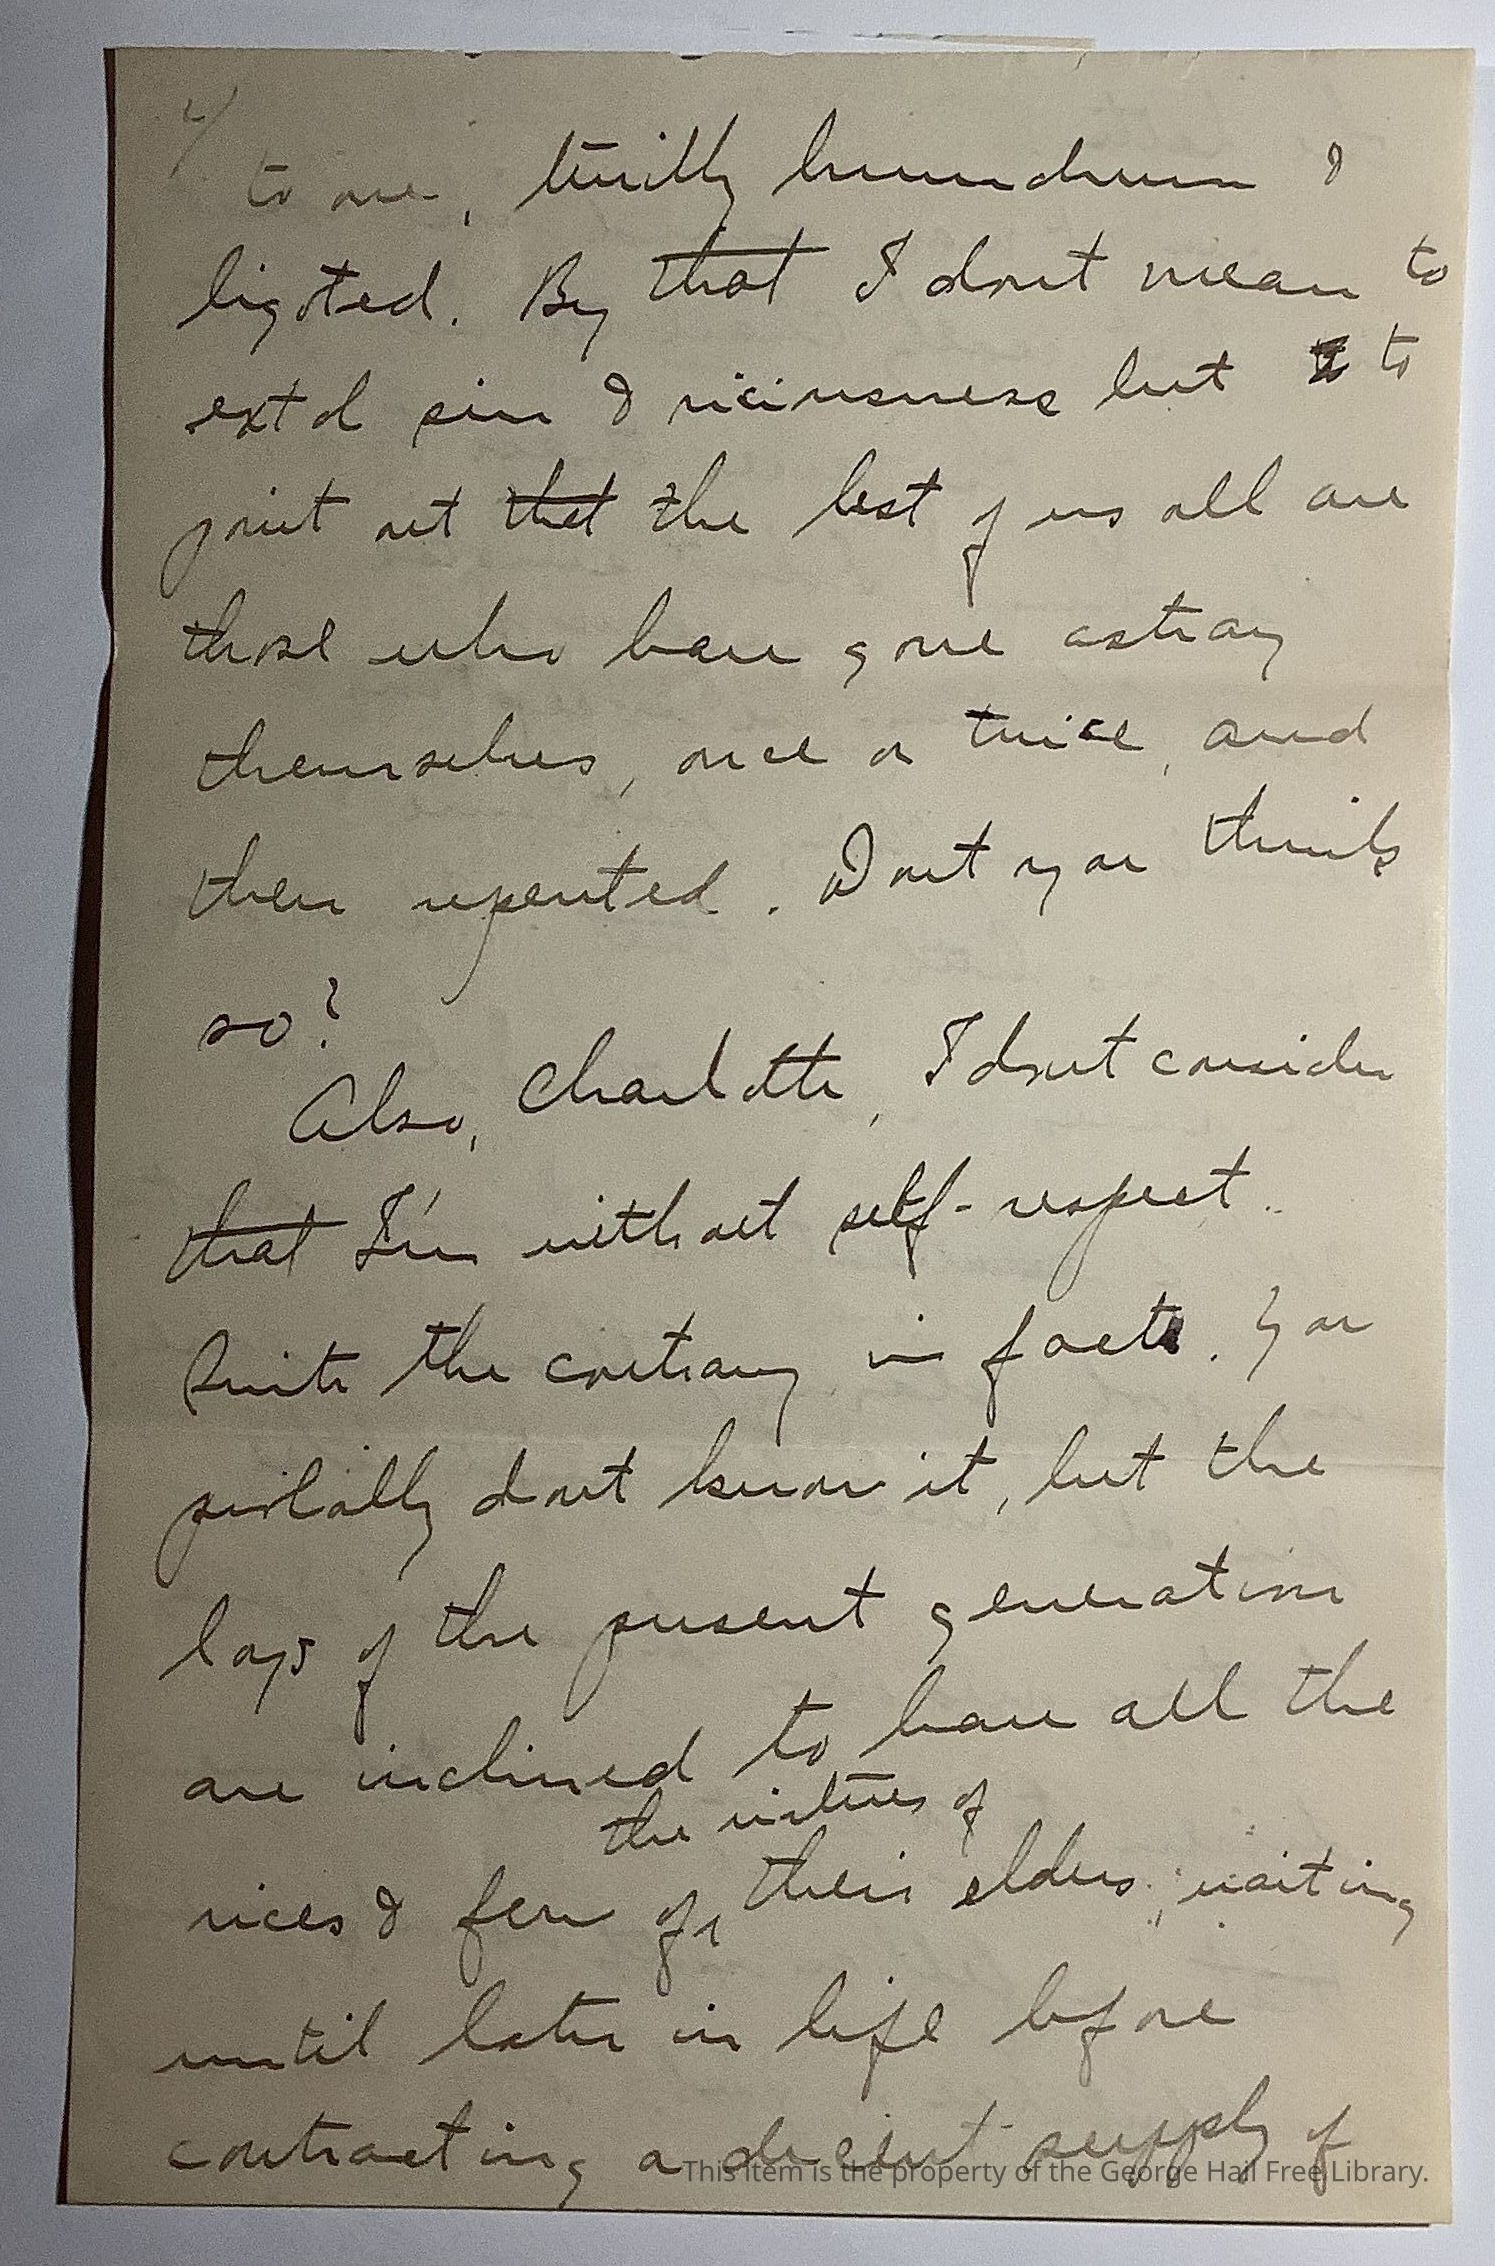 4/
to me, terribly humdrum &
bigoted. By that I dont mean to
extol sin & viciousness but to
point out that the best of us all are
those who have gone astray
themselves, once or twice, and
then repented. Dont you think
so?
Also, Charlotte, I dont consider
that I'm without self-respect.
Quite the contrary in fact. You
probably dont know it, but the
boys of the present generation
are inclined to have all the
the virtues of
vices & few of their elders; waiting
until later in life before
contracting a decent supply of
This item is the property of the George Hail Free Library.